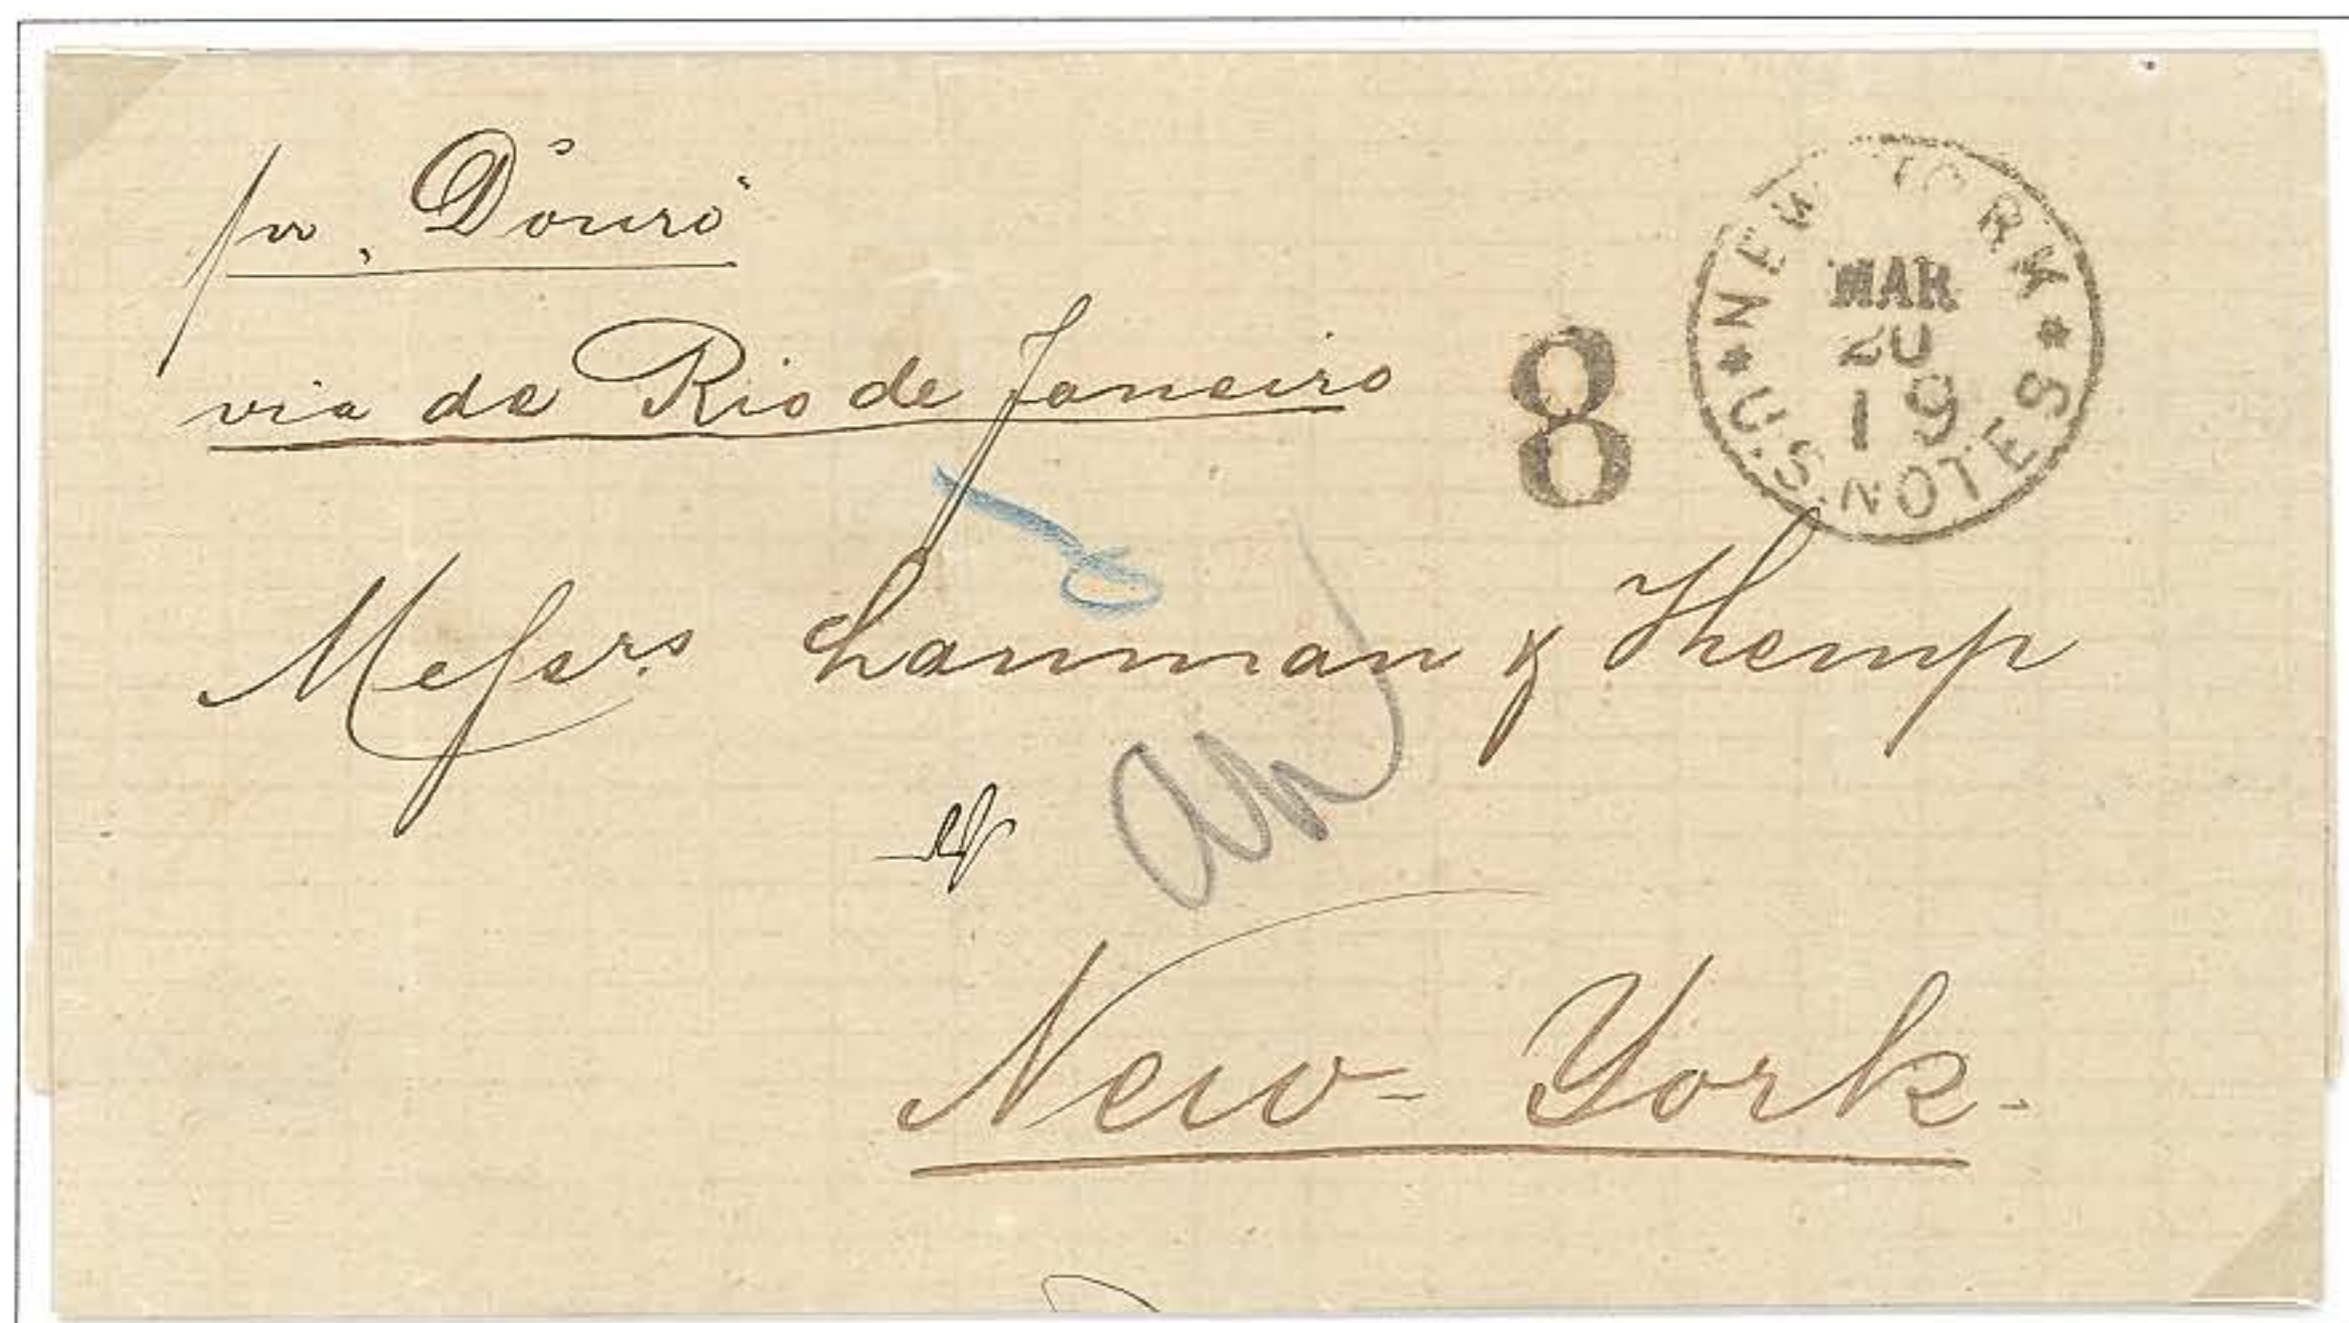 pr. Douro
via de Rio de Janeiro
8
NEW YORK
MAR
20
19
U.S. NOTES
Messrs Lanman & Khemp
New-York.